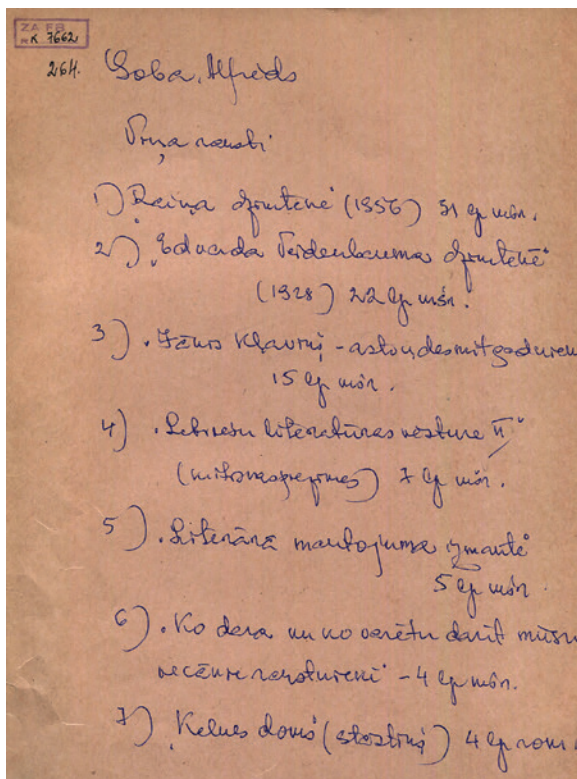 ZA FB
R K 7662
264. Goba, Alfreds
Viņa raksti
1) „Raiņa dzimtenē" (1956) 31 lp. mšr.
2) „Eduarda Veidenbauma dzimtenē"
(1928) 22 lp. mšr.
3) „Jānis Kļaviņš - astoņdesmitgadnieks
15 lp. mšr.
4) „Latviešu literatūras vēsture II"
7 lp. mšr.
5) „Literārā mantojuma izmantē"
5 lp. mšr.
6) „Ko dara un ko varētu darīt mūsu
vecākie rakstnieki" - 4 lp. mšr.
7) „Ķelnes doms" (stāstiņš) 4 lp. rokr.